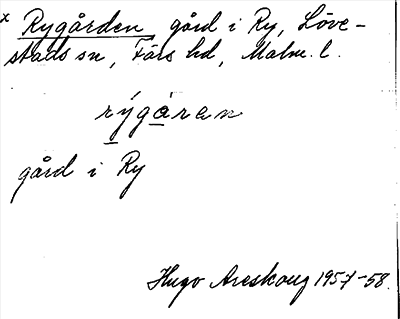 x Rygården gård i Ry, Löve-
stads sn, Färs hd, Malm. l.
rýgåran
gård i Ry
Hugo Areskoug 1957-58.